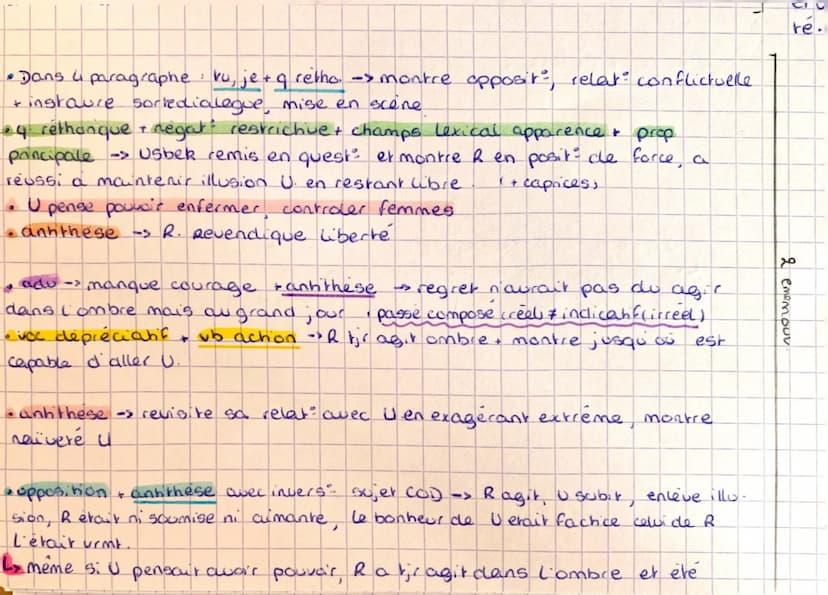 ré.
• Dans 4 paragraphe : vu, je + q rétho. -> montre opposit°, relat° conflictuelle
+ instaure sorte dialogue, mise en scène
• q. réthorique + négat° restrictive + champs lexical apparence + prop
principale -> Usbek remis en quest° et montre R en posit° de force, a
réussi à maintenir illusion U. en restant libre. (+ caprices)
• U pense pouvoir enfermer, controler femmes
• antithèse -> R. Revendique liberté
• adv -> manque courage + antithèse -> regret n'aurait pas du agir
dans l'ombre mais au grand jour, passé composé (réel) ≠ indicatif (irréel)
• voc dépréciatif + vb action -> R tjr agit ombre + montre jusqu'où est
capable d'aller U.
• antithèse -> revisite sa relat° avec U en exagérant extrême, montre
naïveté U
• opposition + antithèse avec invers° sujet COD -> R agit, U subit, enlève illu-
sion, R était ni soumise ni aimante, le bonheur de U était factice celui de R
l'était vrmt.
↳ même si U pensait avoir pouvoir, R a tjr agit dans l'ombre et été